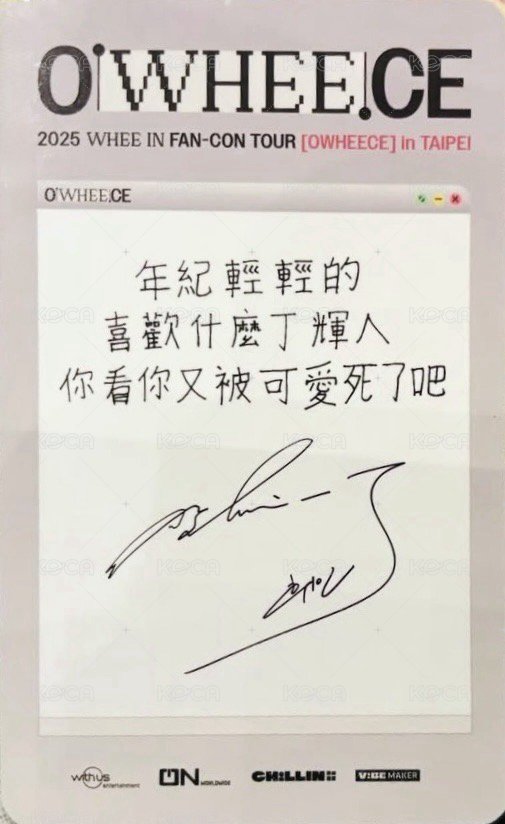 O'WHEE.CE
2025 WHEE IN FAN-CON TOUR [OWHEECE] in TAIPEI
O'WHEE.CE
年紀輕輕的
喜歡什麼丁輝人
你看你又被可愛死了吧
withus entertainment
ON WORLDWIDE
CHILLIN
VIBE MAKER
KPCA